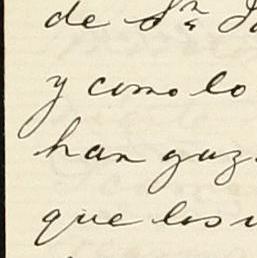 de Sn. Ju
y como lo
han guz
que los